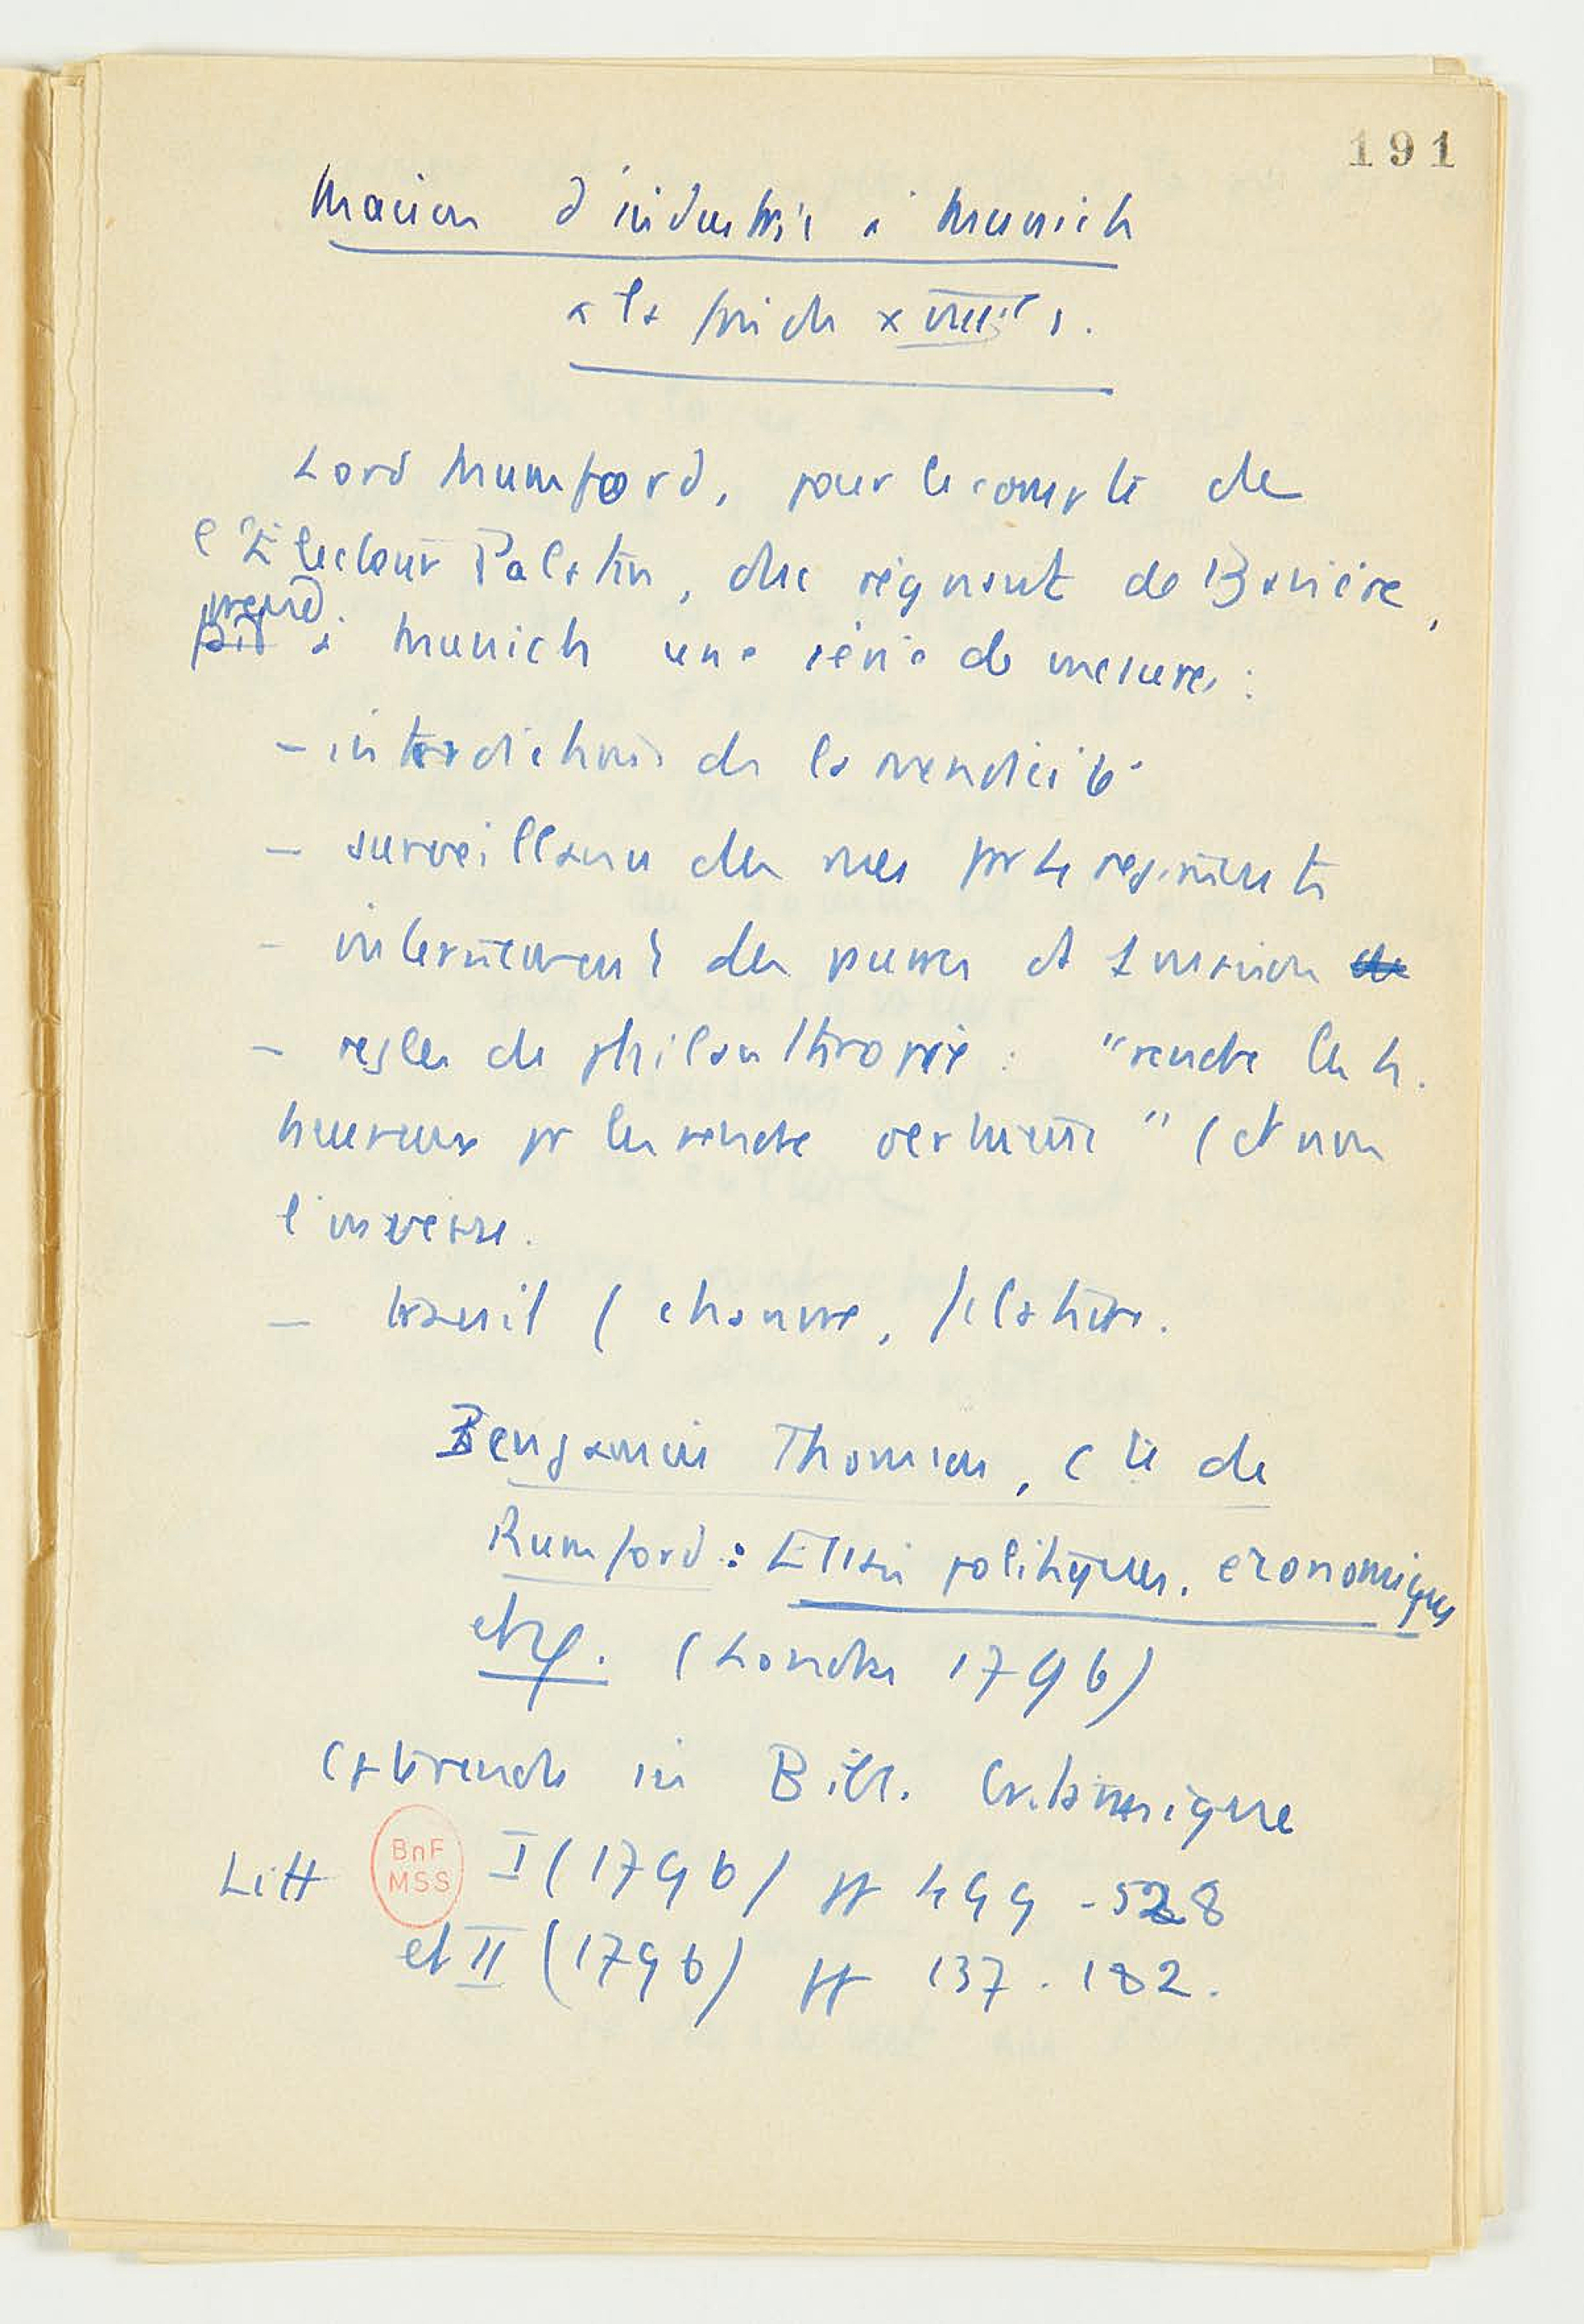 191
Maison d'industrie à Munich
à la fin du XVIIIe s.
Lord Mumford, pour le compte de
l'Electeur Palatin, duc régnant de Bavière,
prend
à Munich une série de mesures :
- interdiction de la mendicité
- surveillance des rues par les regiments
- internement des pauvres et
- regles de philanthropie : "rendre les h.
heureux pr les rendre vertueux" (et non
l'inverse.
- travail (chanvre, filature.
Benjamin Thomson, Cte de
Rumford : Essais politiques, economiques
etc. (Londres 1796)
Cptrendu in Bibl. Britannique
Litt BnF MSS I (1796) pp 499-528
et II (1796) pp 137-182.